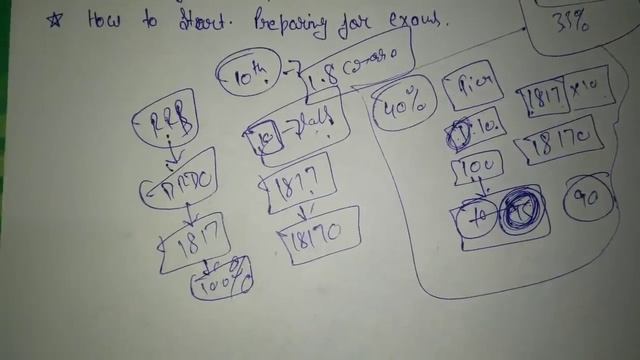 * How to Start. Preparing for exams.
35%
10th
1.8 crore
40%
1817 × 10
RRB
10
1.10
18170
DRDO
1817
100
1817
18170
90
100%